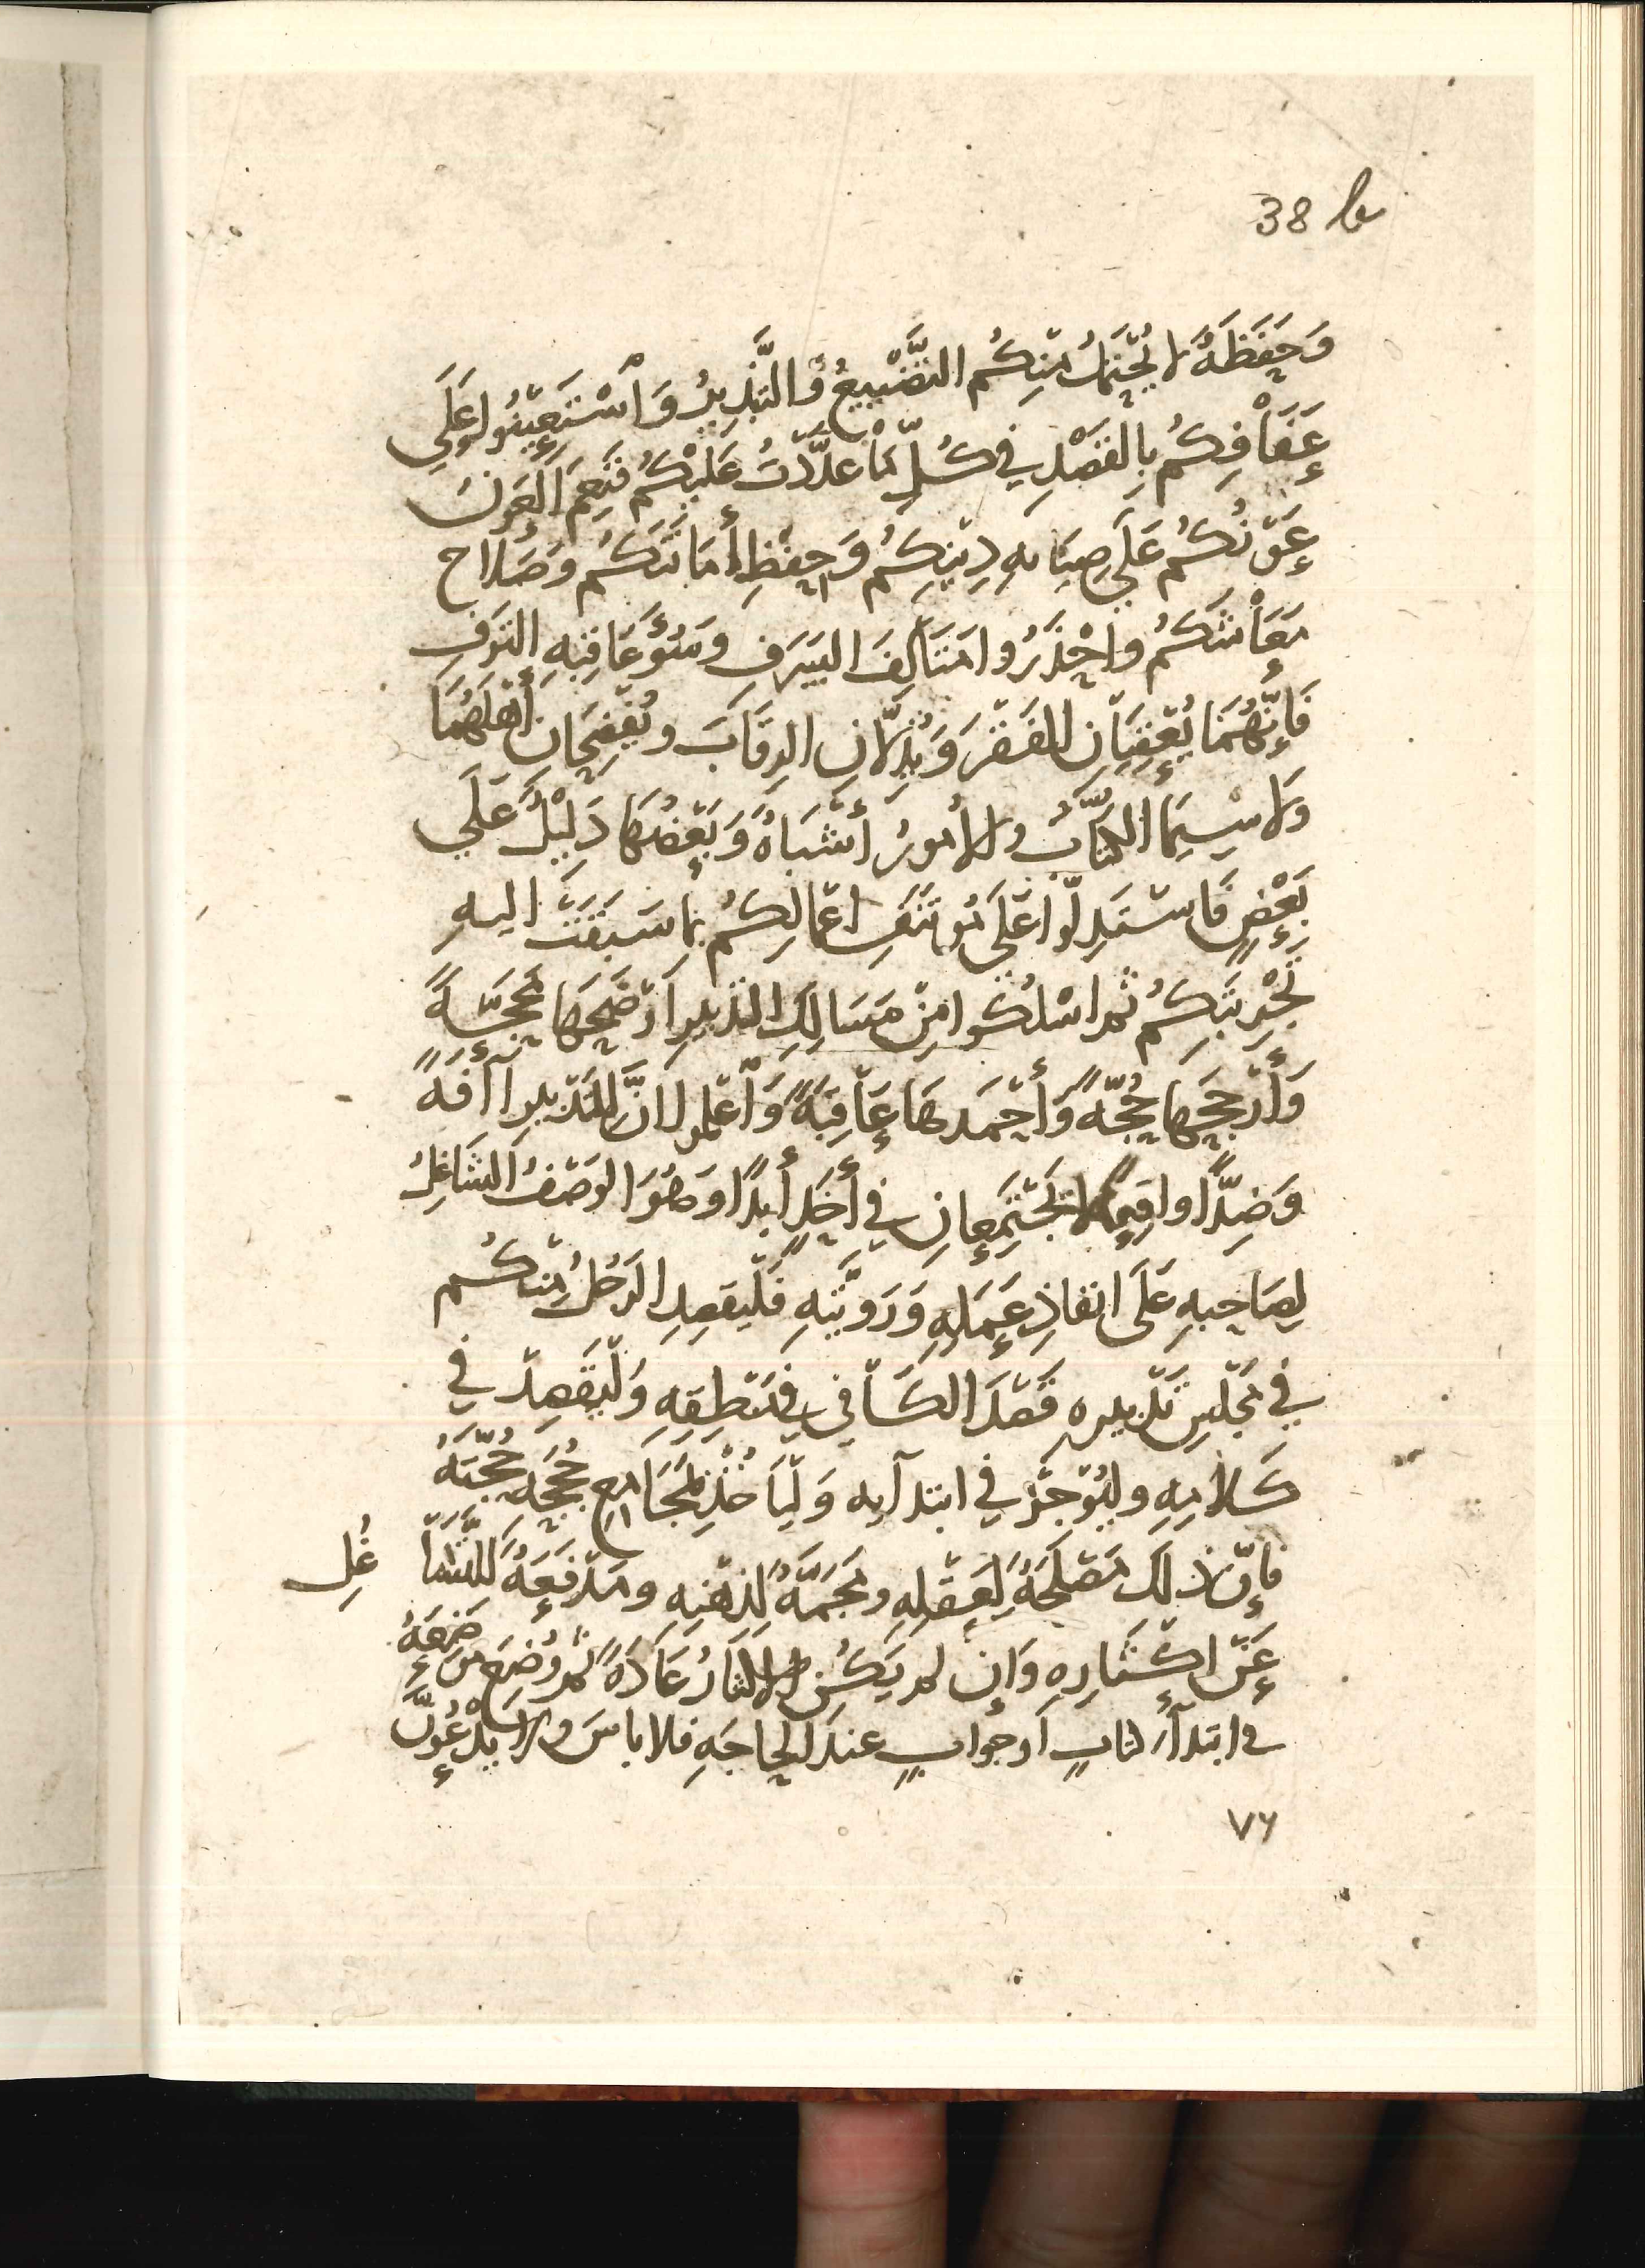 38 b
وَحِفْظَهُ لا يُحْتَمَلُ مِنْكُم التَّضْيِيعُ وَالتَّبْذِيرُ وَاسْتَعِينُوا عَلَى
عَفَافِكُم بِالقَصْدِ فِي كُلِّ مَا عَدَّدْتُ عَلَيْكُم فَنِعْمَ العَونُ
عَوْنُكُم عَلَى صِيَانهِ دِينِكُم وَحِفْظِ أَمَانَتِكُم وَصَلَاح
مَعَاشِكُم واحْذَرُوا مَتَالِفَ السَّرَفِ وسُوءَ عَاقِبَهِ التَرَفِ
فَإِنَّهُمَا يُعْقِبَانِ الفَقْرَ وَيُذِلَّانِ الرِقَابَ ويُفْضِحَانِ أَهْلَهُمَا
وَلَا سِيَمَا الكُتَّابُ والأُمُورُ أَشْبَاهٌ وَبَعْضُهَا دَلِيلٌ عَلَى
بَعْضٍ فَاسْتَدِلُّوا عَلَى مُوتَنَفِ اعمَالِكُم بِمَا سَبَقَتْ اليهِ
تَجْرِبَتِكُم ثم اسْلُكُوا مِنْ مَسَالِكِ التَدبيرِ أَوْضَحَهَا مَحَجَّةً
وَأَرْجَحَهَا حُجَّةً وَأَحْمَدهَا عَاقِبَةً وَاعْلموا انَّ لِلتَدْبيرِ آفَةً
وَضِدًّا واقِعًا لا يَجْتَمِعَانِ فِي أَحَدٍ أَبَدًا وَهُوَ الوَصْفُ الشَاغِلُ
لِصَاحِبهِ عَلَى انفاذِ عَمَلِهِ وَرَوِيَّتِهِ فَلْيَقصِدِ الرَجُلُ مِنكُم
فِي مَجْلِسِ تَدْبيرِه قَصْدَ الكَافِي فِي مَنْطِقِهِ وَلْيَقصِدْ فِي
كَلَامِهِ وليُوْجَزْ فِي ابتدآيه وَلْيَاخُذْ بِمَجَامِعِ حُجَجِهِ حُجَّتَهُ
فَإِنَّ ذَلِكَ مَصْلَحَةٌ لِعَقْلِهِ ومَجَمَّةٌ لِذِهْنِهِ ومَدْفَعَةٌ لِلتَّشَاغُلِ
عَنْ اكْثَارِهِ وَإن لم يَكُن الاكثَارُ عَادَةً ثم وُضِعَ مَوْضِعَهُ
في ابتدآءِ كتابٍ أَو جَوابٍ عندَ الحاجَهِ فلا باسَ ولا يَدْعُوَنَّ
٧٦